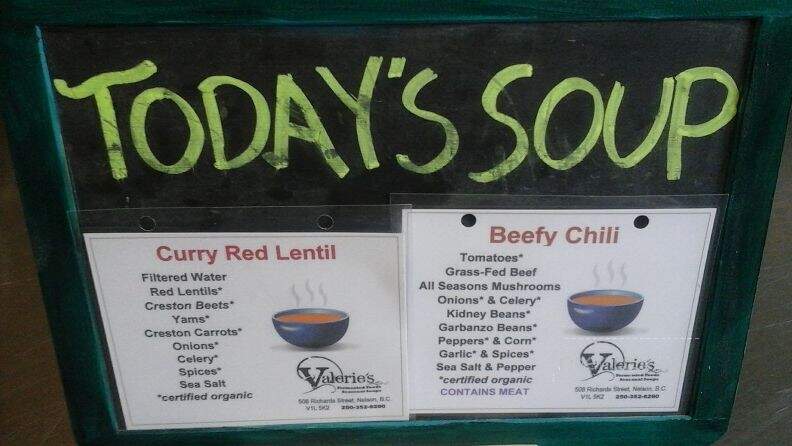 TODAY'S SOUP
Curry Red Lentil
Filtered Water
Red Lentils*
Creston Beets*
Yams*
Creston Carrots*
Onions*
Celery*
Spices*
Sea Salt
*certified organic
Valerie's
Fermented Foods
Seasonal Soups
508 Richards Street, Nelson, B.C.
V1L 5K2 250-352-6260
Beefy Chili
Tomatoes*
Grass-Fed Beef
All Seasons Mushrooms
Onions* & Celery*
Kidney Beans*
Garbanzo Beans*
Peppers* & Corn*
Garlic* & Spices*
Sea Salt & Pepper
*certified organic
CONTAINS MEAT
Valerie's
Fermented Foods
Seasonal Soups
508 Richards Street, Nelson, B.C.
V1L 5K2 250-352-6260